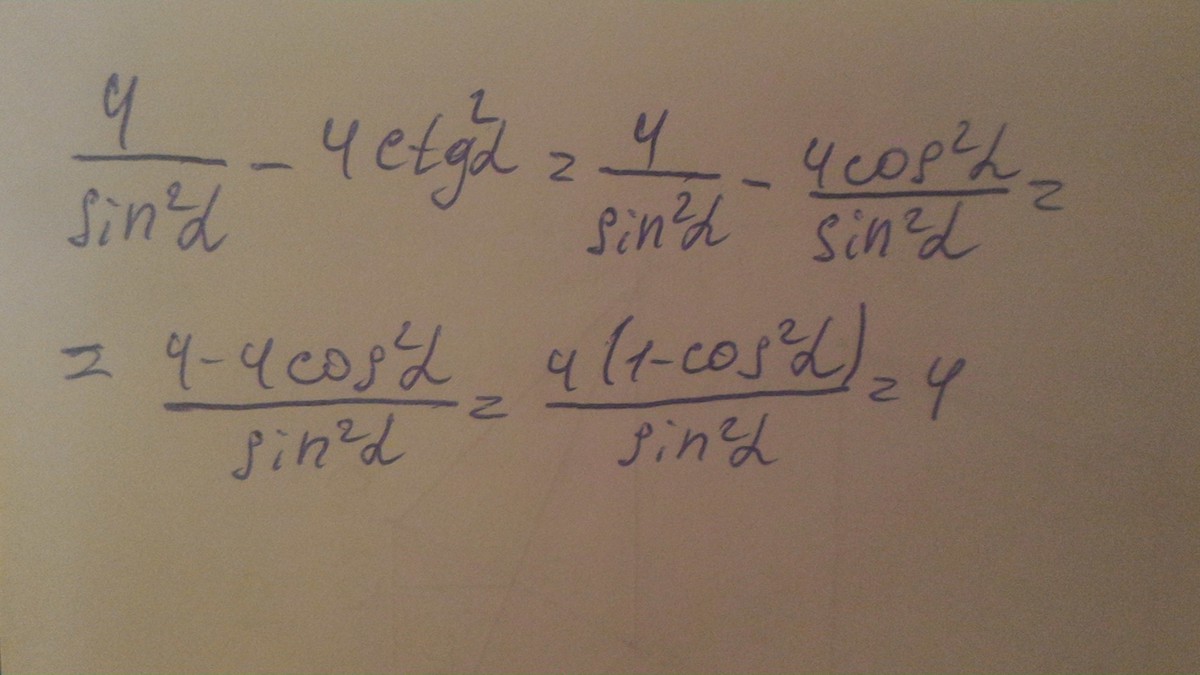 4/sin²α - 4ctg²α = 4/sin²α - 4cos²α/sin²α =
= (4-4cos²α)/sin²α = 4(1-cos²α)/sin²α = 4